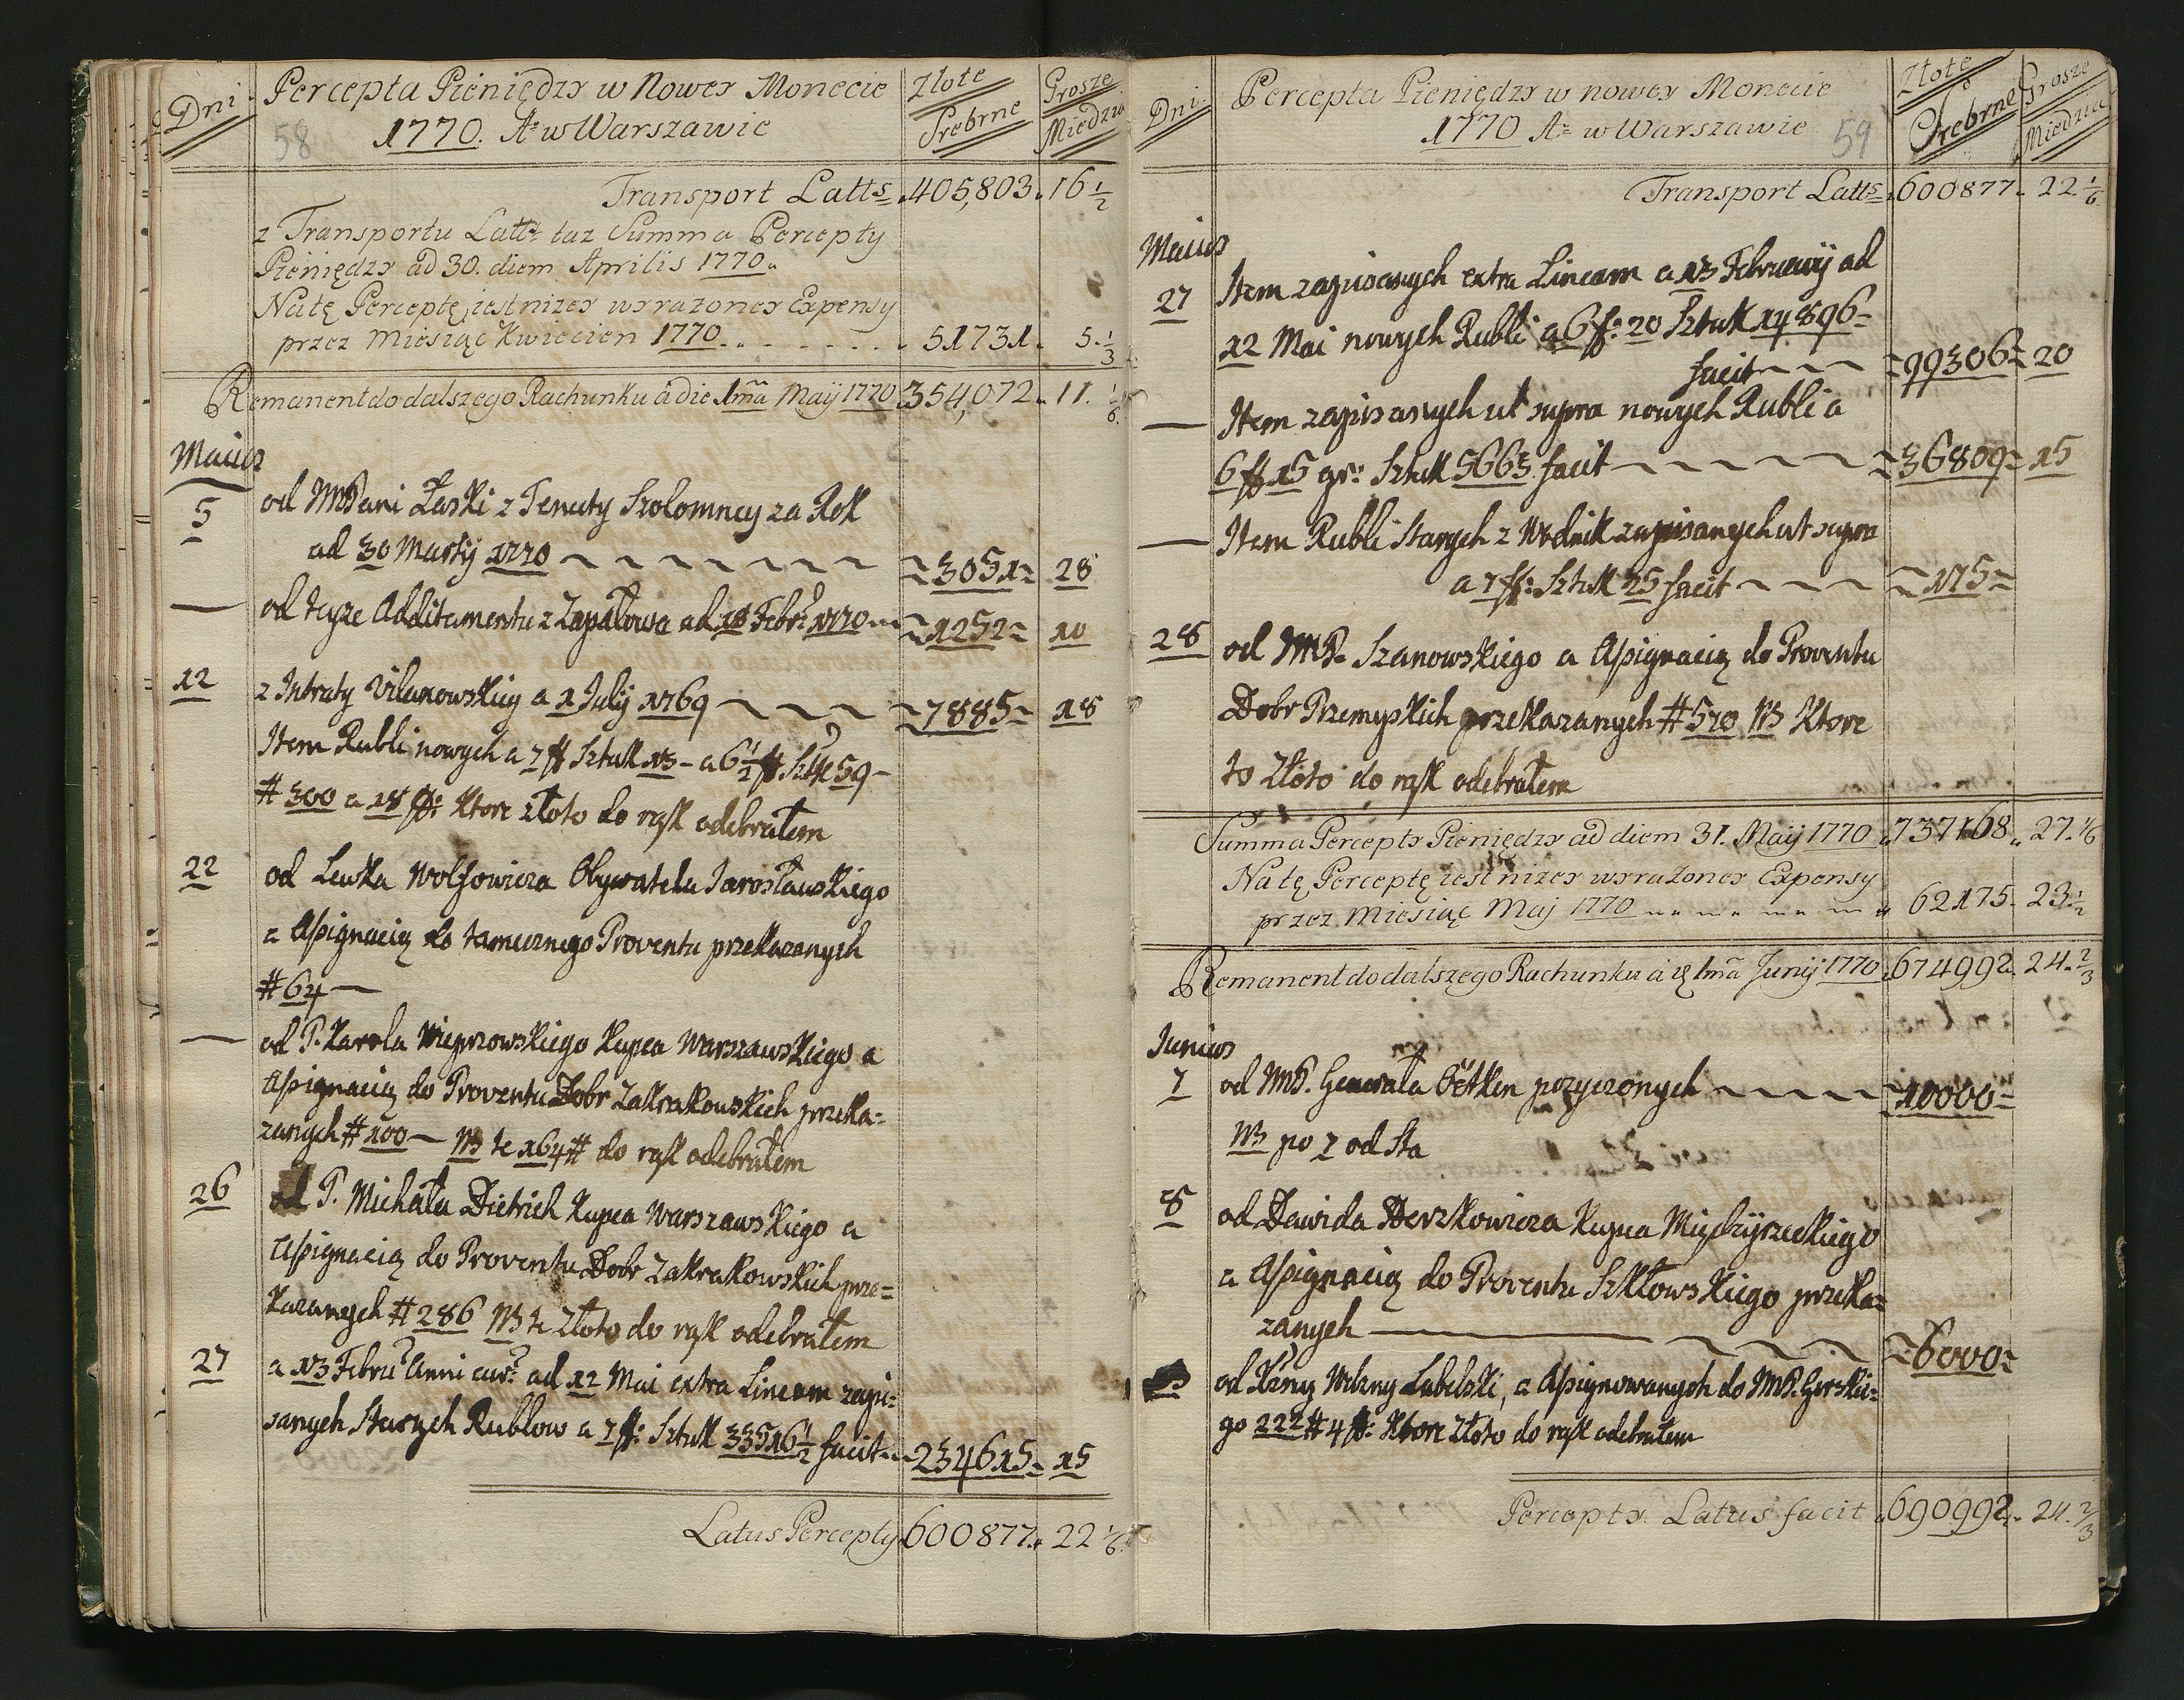 Dni
Percepta Pieniędzy w Nowey Monecie
1770. Aº w Warszawie
58
Złote
Srebrne
Grosze
Miedzia
Transport Latts 405,803. 16 1/2
z Transportu Latts taz Summa Percepty
Pieniędzy ad 30. diem Aprilis 1770.
Na tę Perceptę iest nizey wyrazoney Expensy
przez Miesiąc Kwiecien 1770 51731. 5. 1/3
Remanent do dalszego Rachunku a die 1ma Maij 1770 354,072. 11. 1/6.
Maius
5 od JMPani Łaski z Tenuty Szolomney za Rok
ad 30 Martij 1770 3051 28
— od teyze Additamentu z Zapałowa ad 18 Febr: 1770 1252 10
12 z Intraty Vilanowskiey a 1 July 1769 7885 18
Item Rubli nowych a 7 ff Sztuk 13 – a 6 1/2 ff Sztk 59 –
# 300 a 18 ff: ktore złoto do rąk odebrałem
22 od Lewka Wolfowicza Obywatela Jarosławskiego
z Assignacią do tamecznego Proventu przekazanych
# 64 —
— od P. Karola Wieprzowskiego Kupca Warszawskiego z
Assignacią do Proventu Dobr Zakrakowskich przeka=
zanych # 100 — NB te 164 # do rąk odebrałem
26 od P. Michała Dietrich Kupca Warszawskiego z
Assignacią do Proventu Dobr Zakrakowskich prze=
kazanych # 286 NB te Złoto do rąk odebrałem
27 a 13 Febru: Anni cur: ad 12 Mai extra Lineam zapi=
sanych Starych Rublow a 7 ff: Sztuk 33516 1/2 facit 234615 15
Latus Percepty 600877. 22 1/6.
Dni
Percepta Pieniędzy w nowey Monecie
1770 Aº w Warszawie
59
Złote
Srebrne
Grosze
Miedzia
Transport Latts 600877. 22 1/6.
Maius
27 Item zapisanych extra Lineam a 13 Februarij ad
12 Mai nowych Rubli a 6 ff: 20 Sztuk 14896 –
facit 99306 20
— Item zapisanych ut supra nowych Rubli a
6 ff 15 gr: Sztuk 5663 facit 36809 15
— Item Rubli Starych z zapisanych ut supra
a 7 ff: Sztuk 25 facit 175
28 od JMP. Szanowskiego z Assignacią do Proventu
Dobr Przemyskich przekazanych # 570 NB Ktore
to Złoto do rąk odebrałem
Summa Percepty Pieniędzy ad diem 31. Maij 1770 737168. 27. 1/6
Na tę Perceptę iest nizey wyrazoney Expensy
przez Miesiąc Maj 1770 62175. 23. 1/2
Remanent do dalszego Rachunku a 1ma Junij 1770 674992. 24. 2/3
Junius
7 od JMP. Generała Oëtken pozyczonych 10000
NB po 7 od Sta
8 od Dawida Herzkowicza Kupca Międzyrzeckiego
z Assignacią do Proventu Szkłowskiego przeka=
zanych 6000
od Xżny Wdzny Lubelski, z Assignowanych do JMP. Gorskie=
go 222 # 4 ff: Ktore Złoto do rąk odebrałem
Percepty Latus facit 690992. 24. 2/3